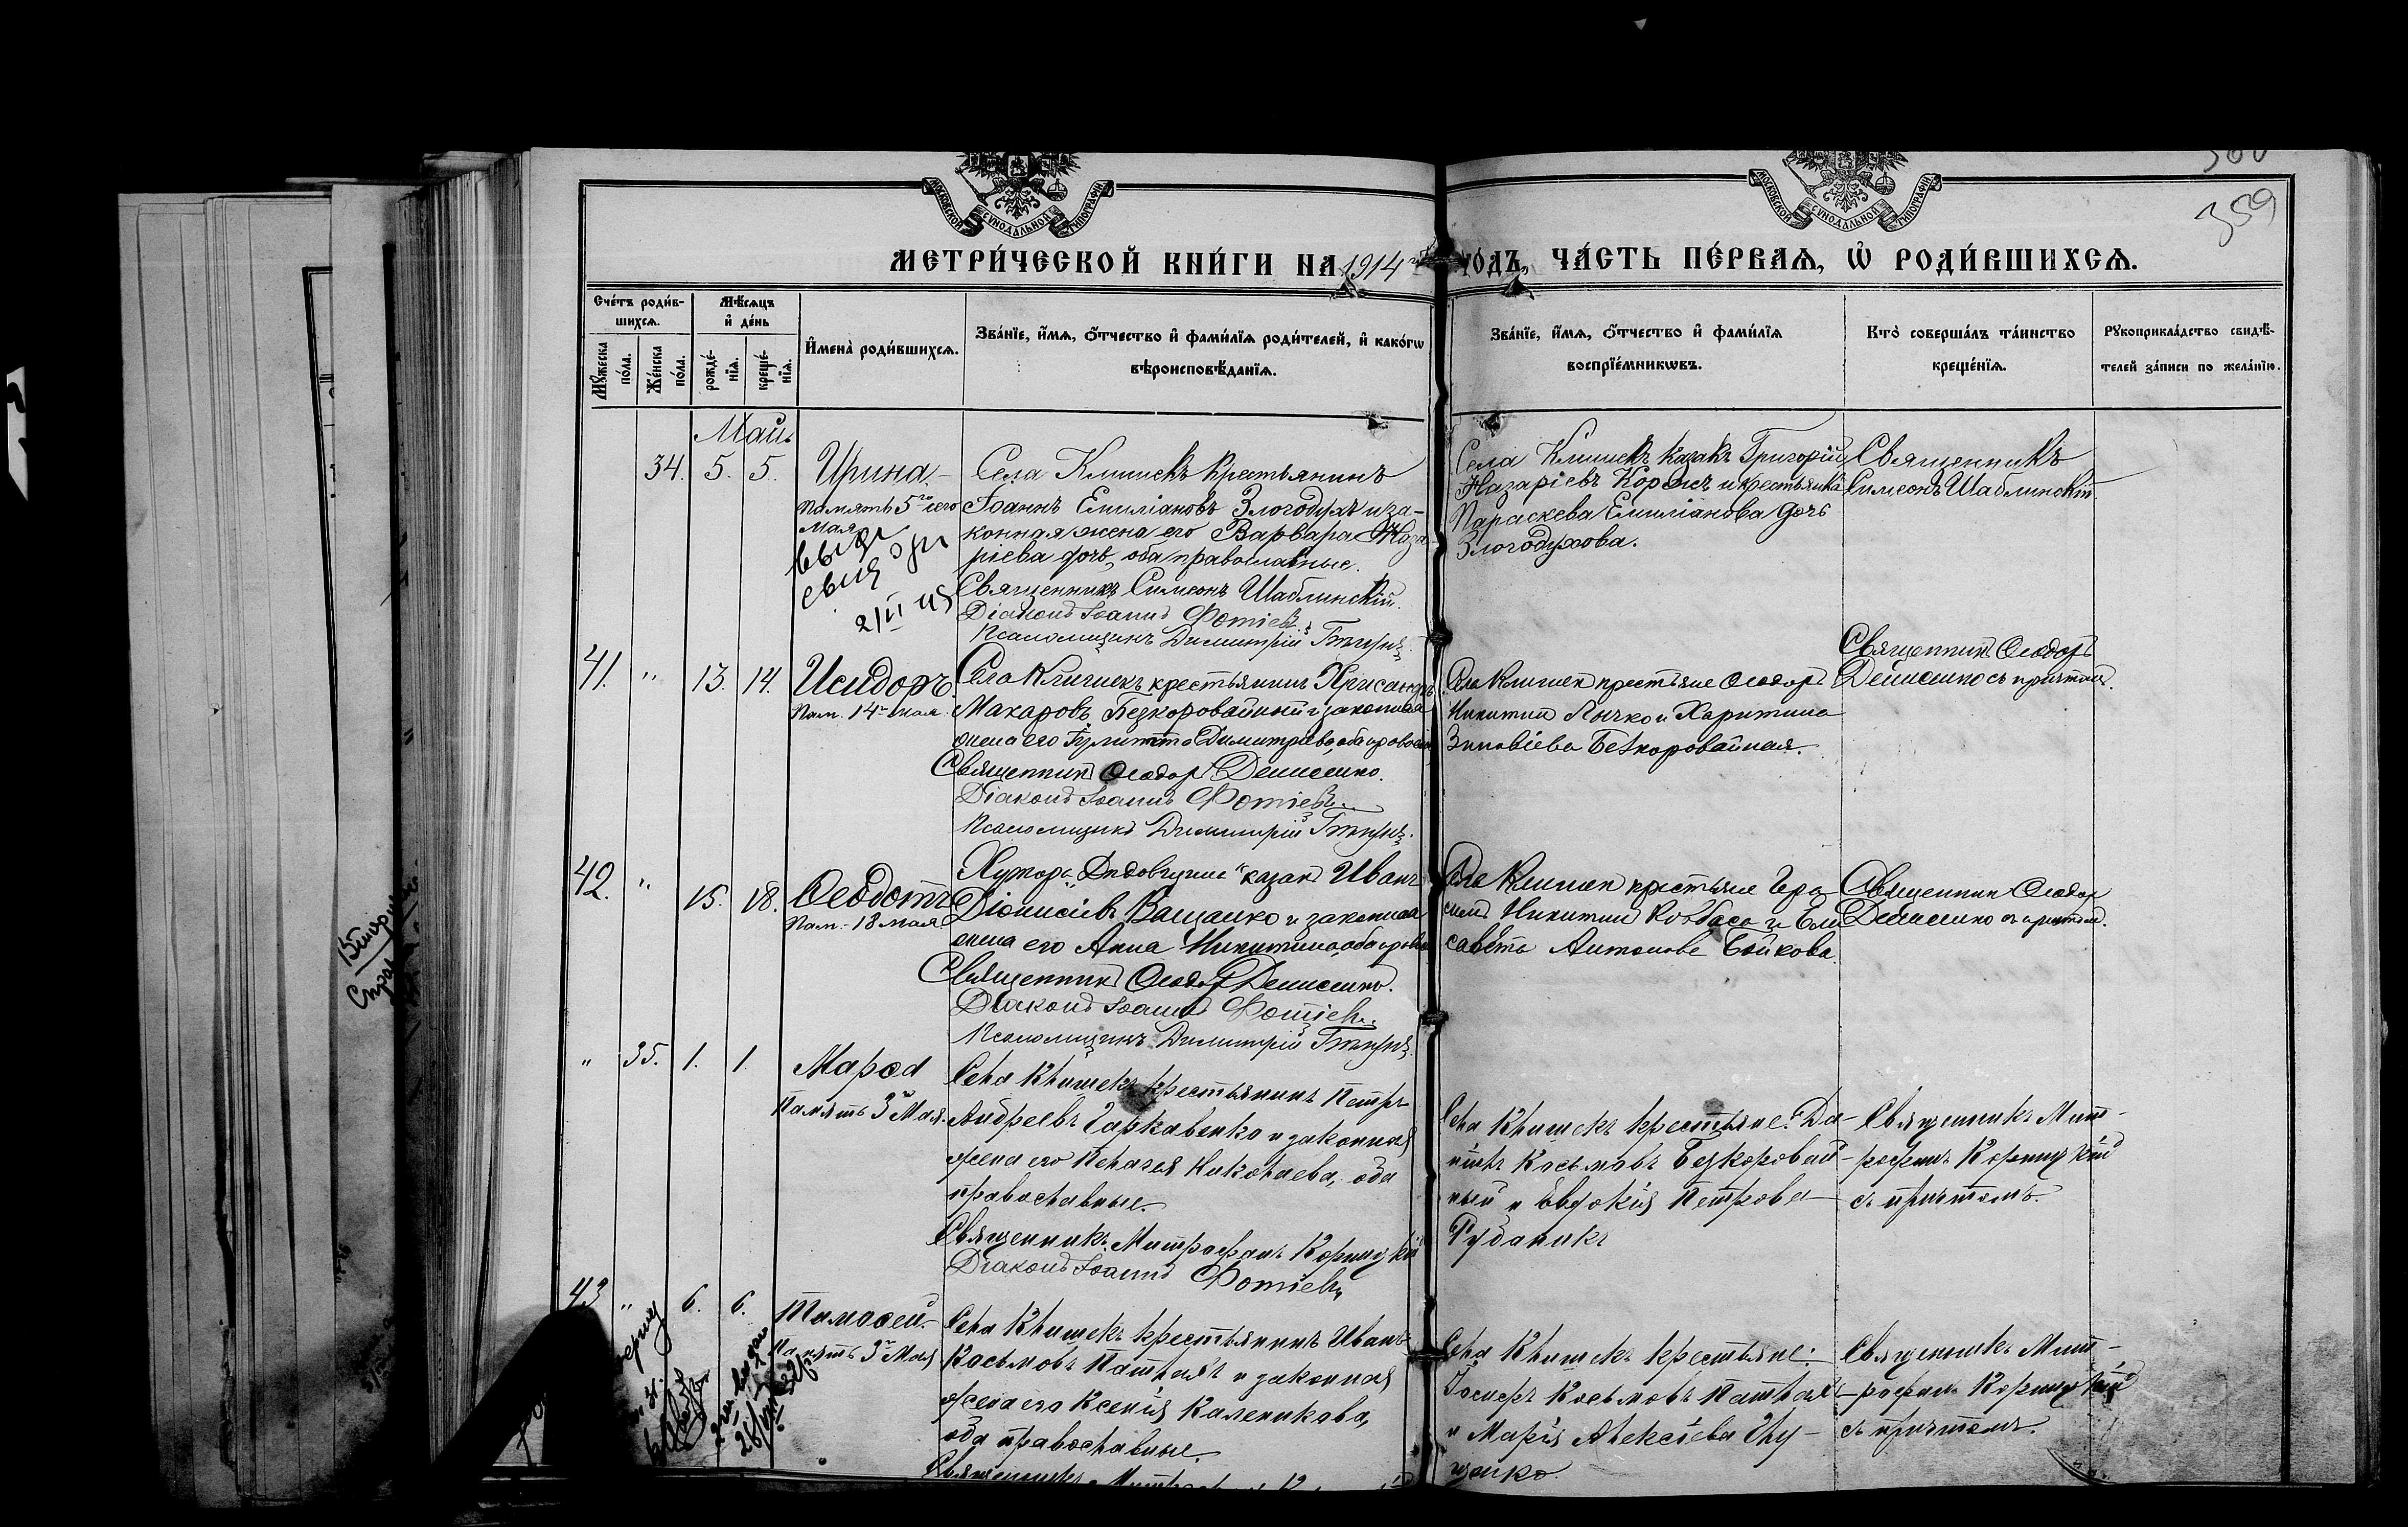 МОСКОВСКОЙ СУНОДАЛЬНОЙ ТИПОГРАФІИ
МОСКОВСКОЙ СУНОДАЛЬНОЙ ТИПОГРАФІИ
359
МЕТРИ́ЧЕСКОЙ КНИ́ГИ НА 1914 ГО́ДЪ, ЧА́СТЬ ПЕ́РВАЯ, Ѡ РОДИ́ВШИХСЯ.
Сче́тъ роди́в-
шихся.
Мѣ́сяцъ
и де́нь
Мꙋ́жеска
по́ла.
Же́нска
по́ла.
рожде́-
нїя.
креще́-
нїя.
Имена̀ роди́вшихся.
Зва́нїе, и́мя, ѻ́тчество и фами́лїя роди́телей, и како́гѡ
вѣроисповѣ́данїя.
Зва́нїе, и́мя, ѻ́тчество и фами́лїя
воспрїе́мникѡвъ.
Кто̀ соверша́лъ та́инство
креще́нїя.
Рꙋкоприкла́дство свидѣ́-
телей за́писи по жела́нїю.
Май
34. 5. 5. Ирина.
Память 5го сего
мая
Села Клишекъ крестьянинъ
Іоаннъ Емиліановъ Злогодухъ и за-
конная жена его Варвара Наза-
ріева дочь, оба православные.
Священникъ Симеонъ Шаблинскій.
Діаконъ Іоаннъ Фотіевъ
Псаломщикъ Димитрій
Села Клишекъ казакъ Григорій
Назаріевъ и крестьянка
Параскева Емиліанова дочь
Злогодухова.
Священникъ
Симеонъ Шаблинскій.
41. " 13. 14. Исидоръ.
Пам. 14го мая.
Села Клишекъ крестьянинъ Хрисанфъ
Макаровъ Безкоровайный и законная
жена его Іулитта Димитріева, оба правосл.
Священникъ Ѳеодоръ Денисенко.
Діаконъ Іоаннъ Фотіевъ
Псаломщикъ Димитрій
Села Клишек крестьяне Ѳеодоръ
Никитин Лычко и Харитина
Зиновіева Безкоровайная.
Священник Ѳеодоръ
Денисенко съ причтом.
42. " 15. 18. Ѳеодотъ
Пам. 18 мая
Хутора казак Иванъ
Діонисіевъ Ващенко и законная
жена его Анна Никитина, оба правосл.
Священник Ѳеодоръ Денисенко.
Діаконъ Іоаннъ Фотіевъ
Псаломщикъ Димитрій
Села Клишек крестьяне Гера-
симъ Никитин Ковбаса и Ели-
савета Антонова Бойкова.
Священник Ѳеодор
Денисенко съ причтом.
" 35. 1. 1. Марѳа
Память 3го Мая.
Села Клишекъ крестьянинъ Петръ
Андреевъ Гаркавенко и законная
жена его Пелагея Николаева, оба
православные.
Священникъ Митрофанъ Корницкій
Діаконъ Іоаннъ Фотіевъ
Села Клишекъ крестьяне: Да-
ніилъ Косьмовъ Безкоровай-
ный и Евдокія Петрова
Рубаникъ
Священникъ Мит-
рофанъ Корницкій
съ причтомъ.
43 " 6. 6. Тимоѳей.
Память 3го Мая
Села Клишекъ крестьянинъ Иванъ
Косьмовъ Патлахъ и законная
жена его Ксенія Каленикова,
оба православные.
Села Клишекъ крестьяне:
Іосифъ Косьмовъ Патлахъ
и Марія Алексіева Глу-
щенко.
Священникъ Мит-
рофанъ Корницкій
съ причтомъ.